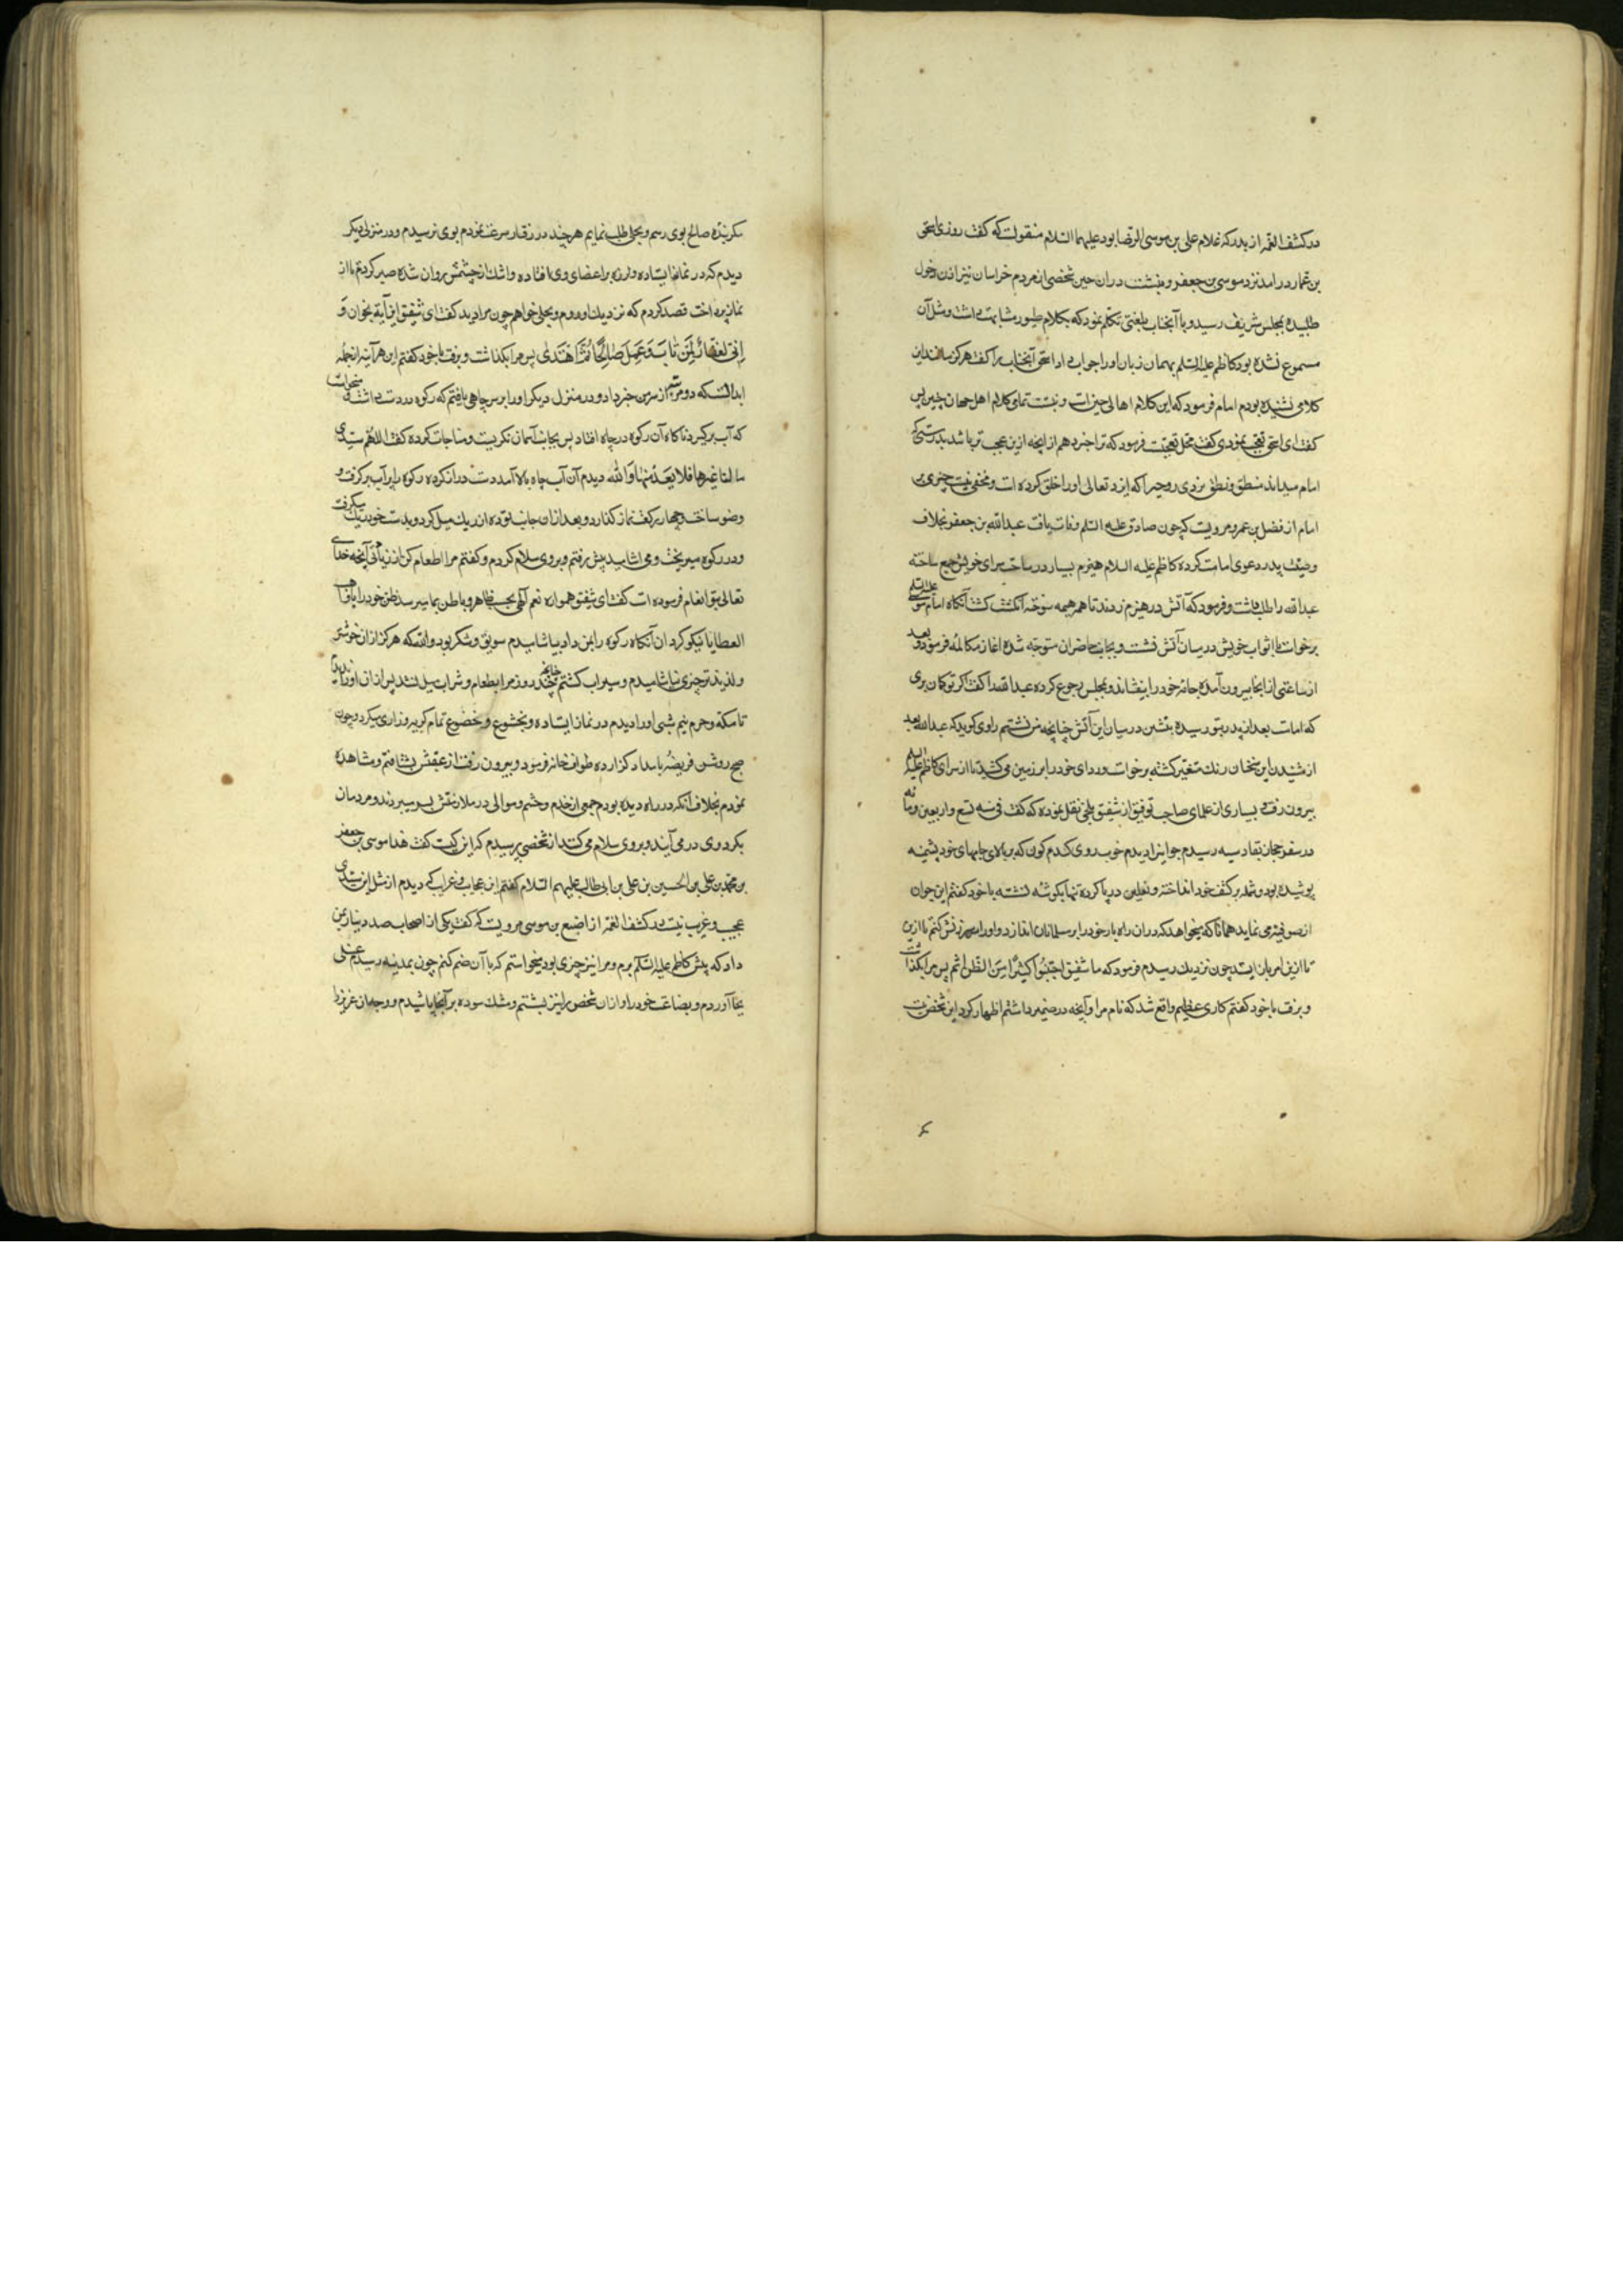 در کشف الغمه از بدر که غلام علی بن موسی الرضا بود علیهما السلام منقولست که گفت روزی اسحق
بن عمار درآمد نزد موسی بن جعفر و بنشست در ان حین شخصی از مردم خراسان نیز اذن دخول
طلبیده بمجلس شریف رسید و با آنجناب بلغتی تکلم نمود که بکلام طیور مشابهت داشت و مثل آن
مسموع نشده بود کاظم علیه السلم بهمان زبان او را جواب داد اسحق آنجناب را گفت هرگز مانند این
کلامی نشنیده بودم امام فرمود که این کلام اهالی چین است و نیست تمام کلام اهل جهان چنین پس
گفت ای اسحق تعجب نمودی گفت محل تعجبست فرمود که ترا خبر دهم از آنچه ازین عجب تر باشد بدرستی که
امام میداند منطق و نطق هر ذی روحیرا که ایزد تعالی او را خلق کرده است و مخفی نیست چیزی بر
امام از فضل بن عمر مرویست که چون صادق علیه السلم وفات یافت عبدالله بن جعفر بخلاف
وصیت پدر دعوی امامت کرده کاظم علیه السلام هیزم بسیار در ساحت سرای خویش جمع ساخته
عبدالله را طلب داشت و فرمود که آتش در هیزم زدند تا همه هیمه سوخته انگشت گشت آنگاه امام موسی علیه السلم
برخاست با اثواب خویش در میان آتش نشست و بجانب حاضران متوجه شده اغاز مکالمه فرمود و بعد
از ساعتی از انجا بیرون آمده جامه خود را بیفشاند و بمجلس رجوع کرده عبدالله را گفت اگر تو گمان بری
که امامت بعد از پدر بتو رسیده بنشین در میان این آتش چنانچه من نشستم راوی گوید که عبدالله بعد
از شنیدن این سخنان رنگ متغیر گشته برخاست و ردای خود را بر زمین می کشید تا از سرای کاظم علیه السلم
بیرون رفت بسیاری از علمای صاحب توفیق از شقیق بلخی نقل نموده که گفت فی سنه تسع و اربعین و مأنه
در سفر حجاز بقادسیه رسیدم جوانی را دیدم خوب روی گندم گون که بر بالای جامهای خود پشمینه
پوشیده بود و شمله بر کتف خود انداخته و نعلین در پا کرده تنها بگوشه نشسته با خود گفتم این جوان
از صوفیه می نماید همانا که میخواهد که در ان راه بار خود را بر مسلمانان اندازد و او را سرزنش کنم تا ازین
تا ازین امر باز ایستد چون نزدیک رسیدم فرمود که یا شقیق اجتنبوا کثیرا من الظن اثم پس مرا بگذاشت
و برفت با خود گفتم کاری عظیم واقع شد که نام مرا و آنچه در ضمیر داشتم اظهار کرد این شخص نیست
مگر
مگر بنده صالح بوی رسم و بحلی طلب نمایم هر چند در رفتار سرعت نمودم بوی نرسیدم و در منزلی دیگر
دیدم که در نماز ایستاده و لرزه بر اعضای وی افتاده و اشک از چشمش روان شده صبر کردم تا از
نماز پرداخت قصد کردم که نزدیک او روم و بحلی خواهم چون مرا دید گفت ای شقیق این آیة بخوان وَ
اِنّی لَغَفّارٌ لِمَن تابَ وَ عَمِلَ صالِحًا ثُمَّ اهتَدی پس مرا بگذاشت و برفت با خود گفتم این هر آینه از جمله
ابدالست که دو مرتبه از سر من خبر داد و در منزل دیگر او را بر سر چاهی یافتم که رکوه در دست داشت و میخواست
که آب برگیرد ناگاه آن رکوه در چاه افتاد پس بجانب آسمان نگریست و مناجات کرده گفت اللهم سیدی
ما لنا غیرها فلا تعدمنیها والله دیدم آن آب چاه بالا آمد دست دراز کرده رکوه را پر آب برگرفت و
وضو ساخت و چهار رکعت نماز گذارد و بعد ازان جانب توده از ریگ میل کرد و بدست خود ریگ میگرفت
و در رکوه میریخت و می اشامید پیش رفتم و بر وی سلام کردم و گفتم مرا اطعام کن از زیادتی آنچه خدای
تعالی بتو انعام فرموده است گفت ای شقیق همواره نعم الهی بحسب ظاهر و باطن بما میرسد ظن خود را بواهب
العطایا نیکو گردان آنگاه رکوه را بمن داد بیاشامیدم سویق و شکر بود والله که هرگز ازان خوشتر
و لذیذتر چیزی نیاشامیدم و سیراب گشتم چنانچه چند روز مرا بطعام و شراب میل نشد پس از ان او را ندیدم
تا مکه و حرم نیم شبی او را دیدم در نماز ایستاده و بخشوع و خضوع تمام گریه و زاری میکرد و چون
صبح روشن فریضه بامداد گزارده طواف خانه فرمود و بیرون رفت از عقبش بشتافتم و مشاهده
نمودم بخلاف آنکه در راه دیده بودم جمعی از خدم و حشم و موالی در ملازمتش بسر میبردند و مردمان
بگرد وی در می آیند و بر وی سلام می کنند از شخصی پرسیدم که این کیست گفت هذا موسی بن جعفر
بن محمد بن علی بن الحسین بن علی بن ابی طالب علیهم السلام گفتم این عجایب و غرایب که دیدم از مثل این سیدی
عجیب و غریب نیست در کشف الغمه از اصبغ بن موسی مرویست که گفت یکی از اصحاب صد دینار بمن
داد که پیش کاظم علیه السلم برم و مرا نیز چیزی بود میخواستم که با آن ضم کنم چون بمدینه رسیدم غسلی
بجا آوردم و بضاعت خود را و ازان شخص را نیز بشستم و مشک سوده بر آنجا پاشیدم و وجه ان عزیز را